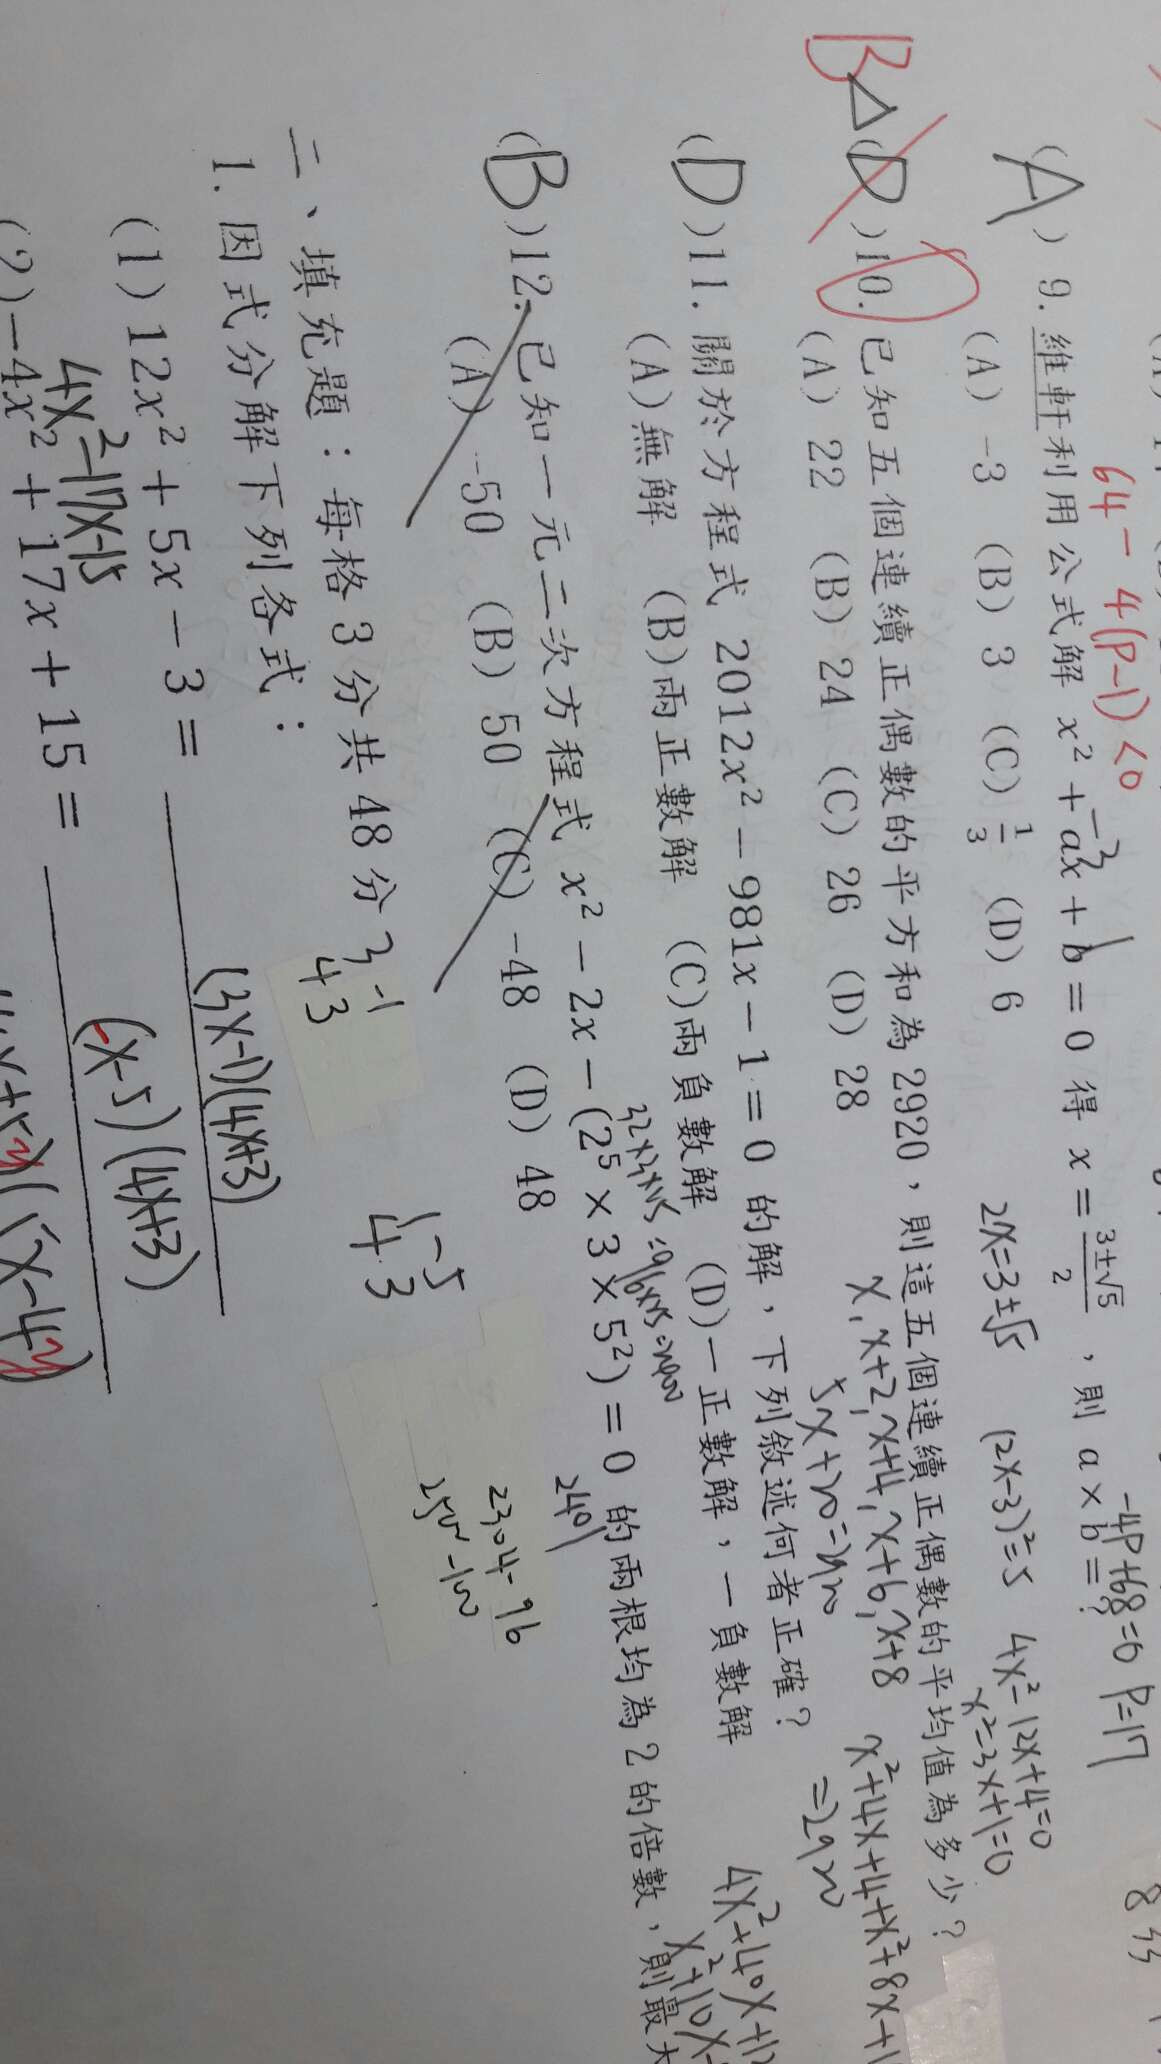 64-4(P-1)<0
-4P+68=0 P=17
(A) 9. 維軒利用公式解 x² + ax + b = 0 得 x = (3±√5)/2 ，則 a × b = ?
-3 1
(A) -3 (B) 3 (C) 1/3 (D) 6
2x=3±√5 (2x-3)²=5 4x²-12x+4=0
x²-3x+1=0
B△(D)10. 已知五個連續正偶數的平方和為 2920，則這五個連續正偶數的平均值為多少？
(A) 22 (B) 24 (C) 26 (D) 28
x, x+2, x+4, x+6, x+8 x²+4x+4+x²+8x+1
5x+20=2920 =2920
(D)11. 關於方程式 2012x² − 981x − 1 = 0 的解，下列敘述何者正確？
(A)無解 (B)兩正數解 (C)兩負數解 (D)一正數解，一負數解
4x²+40x+12
x²+10x-
(B)12. 已知一元二次方程式 x² − 2x − (2⁵ × 3 × 5²) = 0 的兩根均為 2 的倍數，則最大
2401
(A) -50 (B) 50 (C) -48 (D) 48
2304-96
2500-100
二、填充題：每格 3 分共 48 分
3 -1
4 3
1 -5
4 3
1. 因式分解下列各式：
(1) 12x² + 5x − 3 = (3x-1)(4x+3)
4x²-17x-15
(2) −4x² + 17x + 15 = -(x-5)(4x+3)